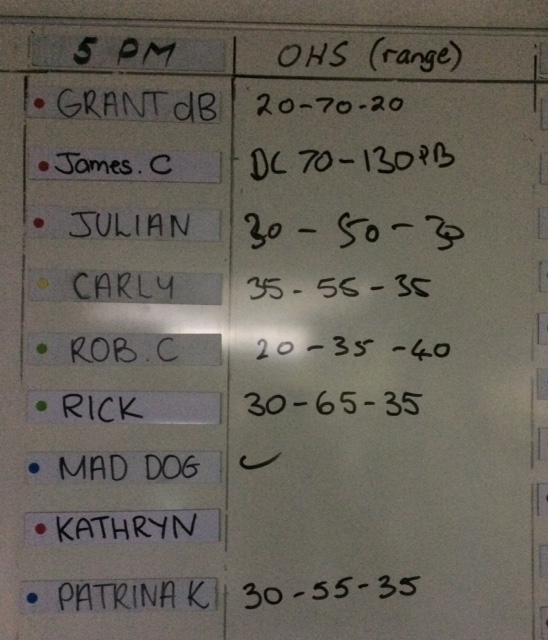 5 PM OHS (range)
• GRANT dB 20-70-20
• James. C DC 70-130 PB
• JULIAN 30 - 50 - 30
• CARLY 35 - 55 - 35
• ROB. C 20 - 35 - 40
• RICK 30 - 65 - 35
• MAD DOG ✓
• KATHRYN
• PATRINA K 30 - 55 - 35